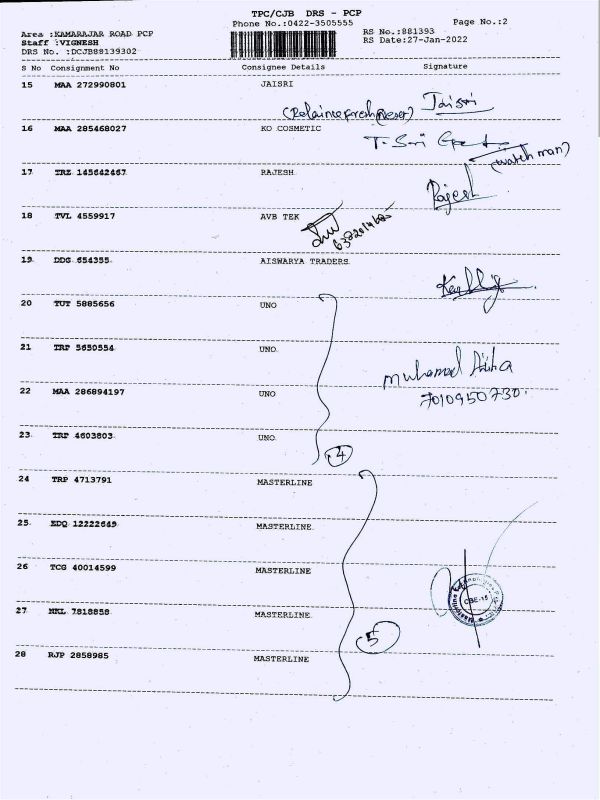 TPC/CJB DRS - PCP
Phone No.:0422-3505555
Page No.:2
Area :KAMARAJAR ROAD PCP
Staff :VIGNESH
DRS No. :DCJB88139302
RS No.:881393
RS Date:27-Jan-2022
S No Consignment No Consignee Details Signature
15 MAA 272990801 JAISRI
(Relaince fresh ) Jaisri
16 MAA 285468027 KO COSMETIC
T. Sri
(watch man)
17 TRZ 145642467 RAJESH
Rajesh
18 TVL 4559917 AVB TEK
19 DDG 654355 AISWARYA TRADERS
20 TUT 5885656 UNO
21 TRP 5650554 UNO
muhamad
22 MAA 286894197 UNO
7010950730
23 TRP 4603803 UNO
4
24 TRP 4713791 MASTERLINE
25 EDQ 12222649 MASTERLINE
26 TCG 40014599 MASTERLINE
CBE-15
27 MKL 7818858 MASTERLINE
5
28 RJP 2858985 MASTERLINE